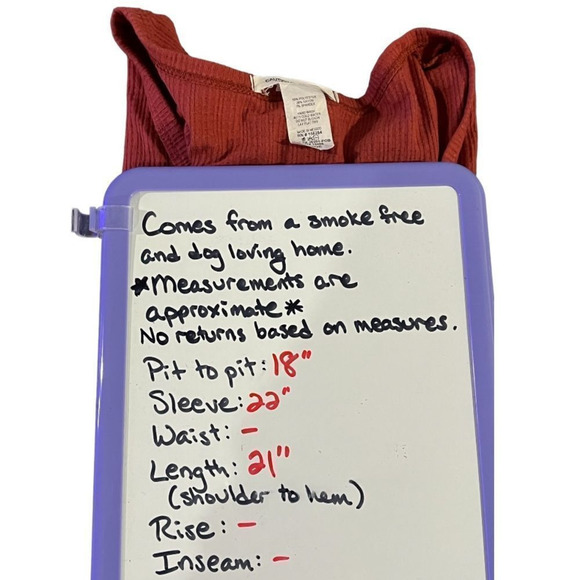 Comes from a smoke free
and dog loving home.
*Measurements are
approximate*
No returns based on measures.
Pit to pit: 18"
Sleeve: 22"
Waist: -
Length: 21"
(shoulder to hem)
Rise: -
Inseam: -